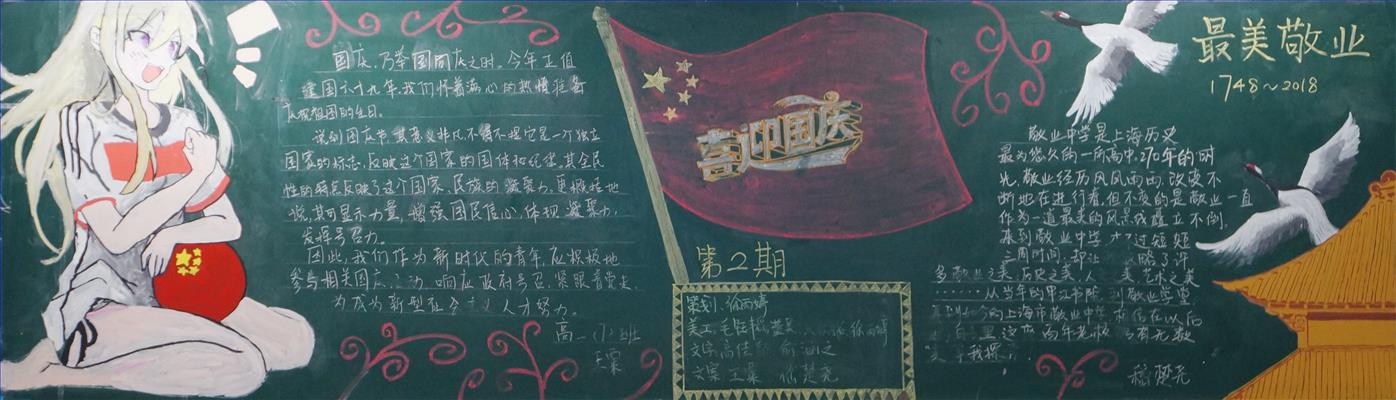 国庆,乃举国同庆之时。今年正值
建国六十九年,我们怀着满心的热情迎来
庆祝祖国的生日。
说到国庆节,其意义非凡,不得不提它是一个独立
国家的标志,反映这个国家的国体和政体,其全民
性的特点反映了这个国家、民族的凝聚力,更概括地
说,其可显示力量,增强国民信心,体现凝聚力,
发挥号召力。
因此,我们作为新时代的青年,应积极地
参与相关国庆活动,响应政府号召,紧跟着党走,
为成为新型社会主义人才努力。
高一(7)班
王粟
喜迎国庆
第2期
策划:徐雨婷
美工:毛
文字:高佳 俞涵之
文案:王粟 嵇楚尧
最美敬业
1748~2018
敬业中学是上海历史
最为悠久的一所高中,270年的时
光,敬业经历风风雨雨,改变不
断地在进行着,但不变的是敬业一直
作为一道最美的风景线矗立不倒。
来到敬业中学 才过短短
三周时间,却让 略了许
多敬业之美,历史之美,人 之美,艺术之美
……从当年的申江书院,到敬业学堂
的上海市敬业中学 在以后
的日 里这所 百年老校 有无数
等我探
嵇楚尧